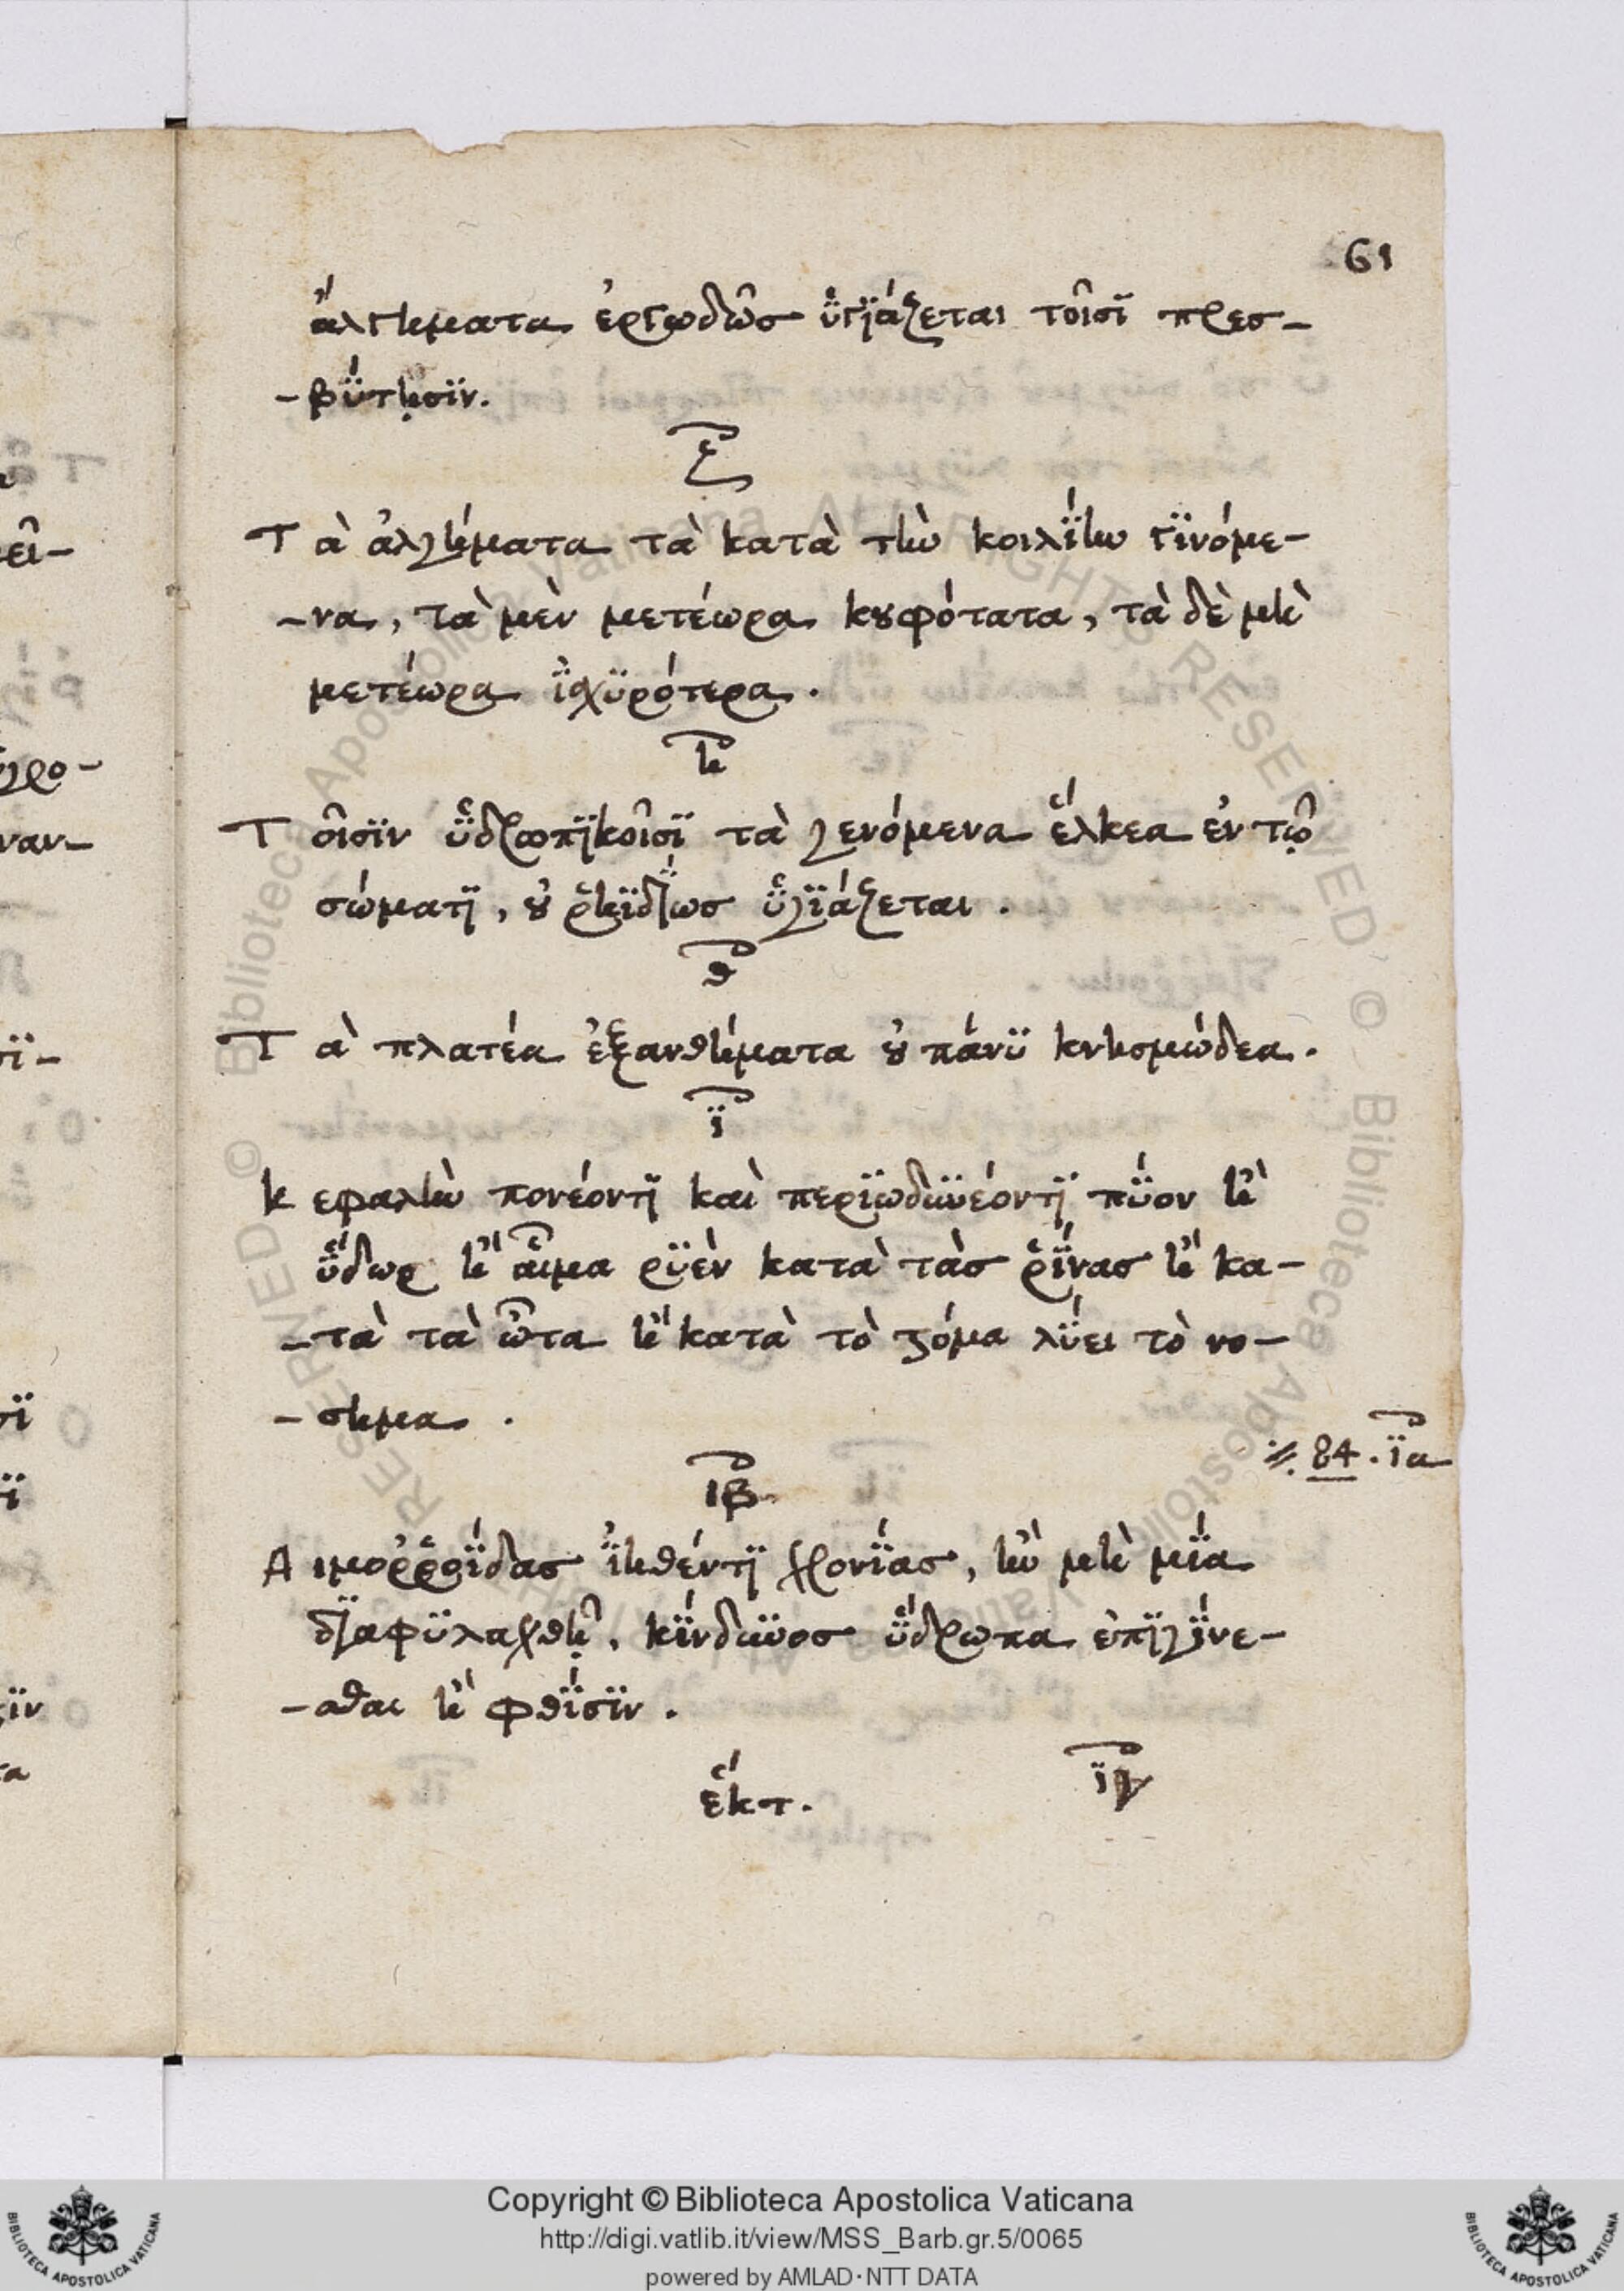 61
ἄλγηματα ἐργωδῶσ ὑγϊάζεται τοῖσϊ πρεσ-
-βΰτῃσϊν.
ζ
Τὰ ἀλγήματα τὰ κατὰ τὴν κοιλΐην γϊνόμε-
-να, τὰ μὲν μετέωρα κουφότατα, τὰ δὲ μὴ
μετέωρα ἰσχϋρότερα.
η
Τοῖσϊν ὑδρωπϊκοῖσϊ τὰ γενόμενα ἕλκεα ἐν τῷ
σώματϊ, οὐ ῥηϊδΐωσ ὑγϊάζεται.
θ
Τὰ πλατέα ἐξανθήματα οὐ πάνϋ κνησμώδεα.
ϊ
Κεφαλὴν πονέοντϊ καὶ περϊωδυνέοντϊ πΰον ἢ
ὕδωρ ἢ αἷμα ρϋὲν κατὰ τὰσ ῥΐνασ ἢ κα-
-τὰ τὰ ὦτα ἢ κατὰ τὸ στόμα λΰει τὸ νο-
-σημα.
//. 84. ϊα
ιβ
Αιμορῥοΐδασ ἰηθέντϊ χρονΐασ, ἢν μὴ μΐα
δϊαφϋλαχθῇ, κΐνδυνοσ ὕδρωπα ἐπϊγΐνε-
-σθαι ἢ φθΐσϊν.
ἕκτ.
ϊγ
Copyright © Biblioteca Apostolica Vaticana
http://digi.vatlib.it/view/MSS_Barb.gr.5/0065
powered by AMLAD·NTT DATA